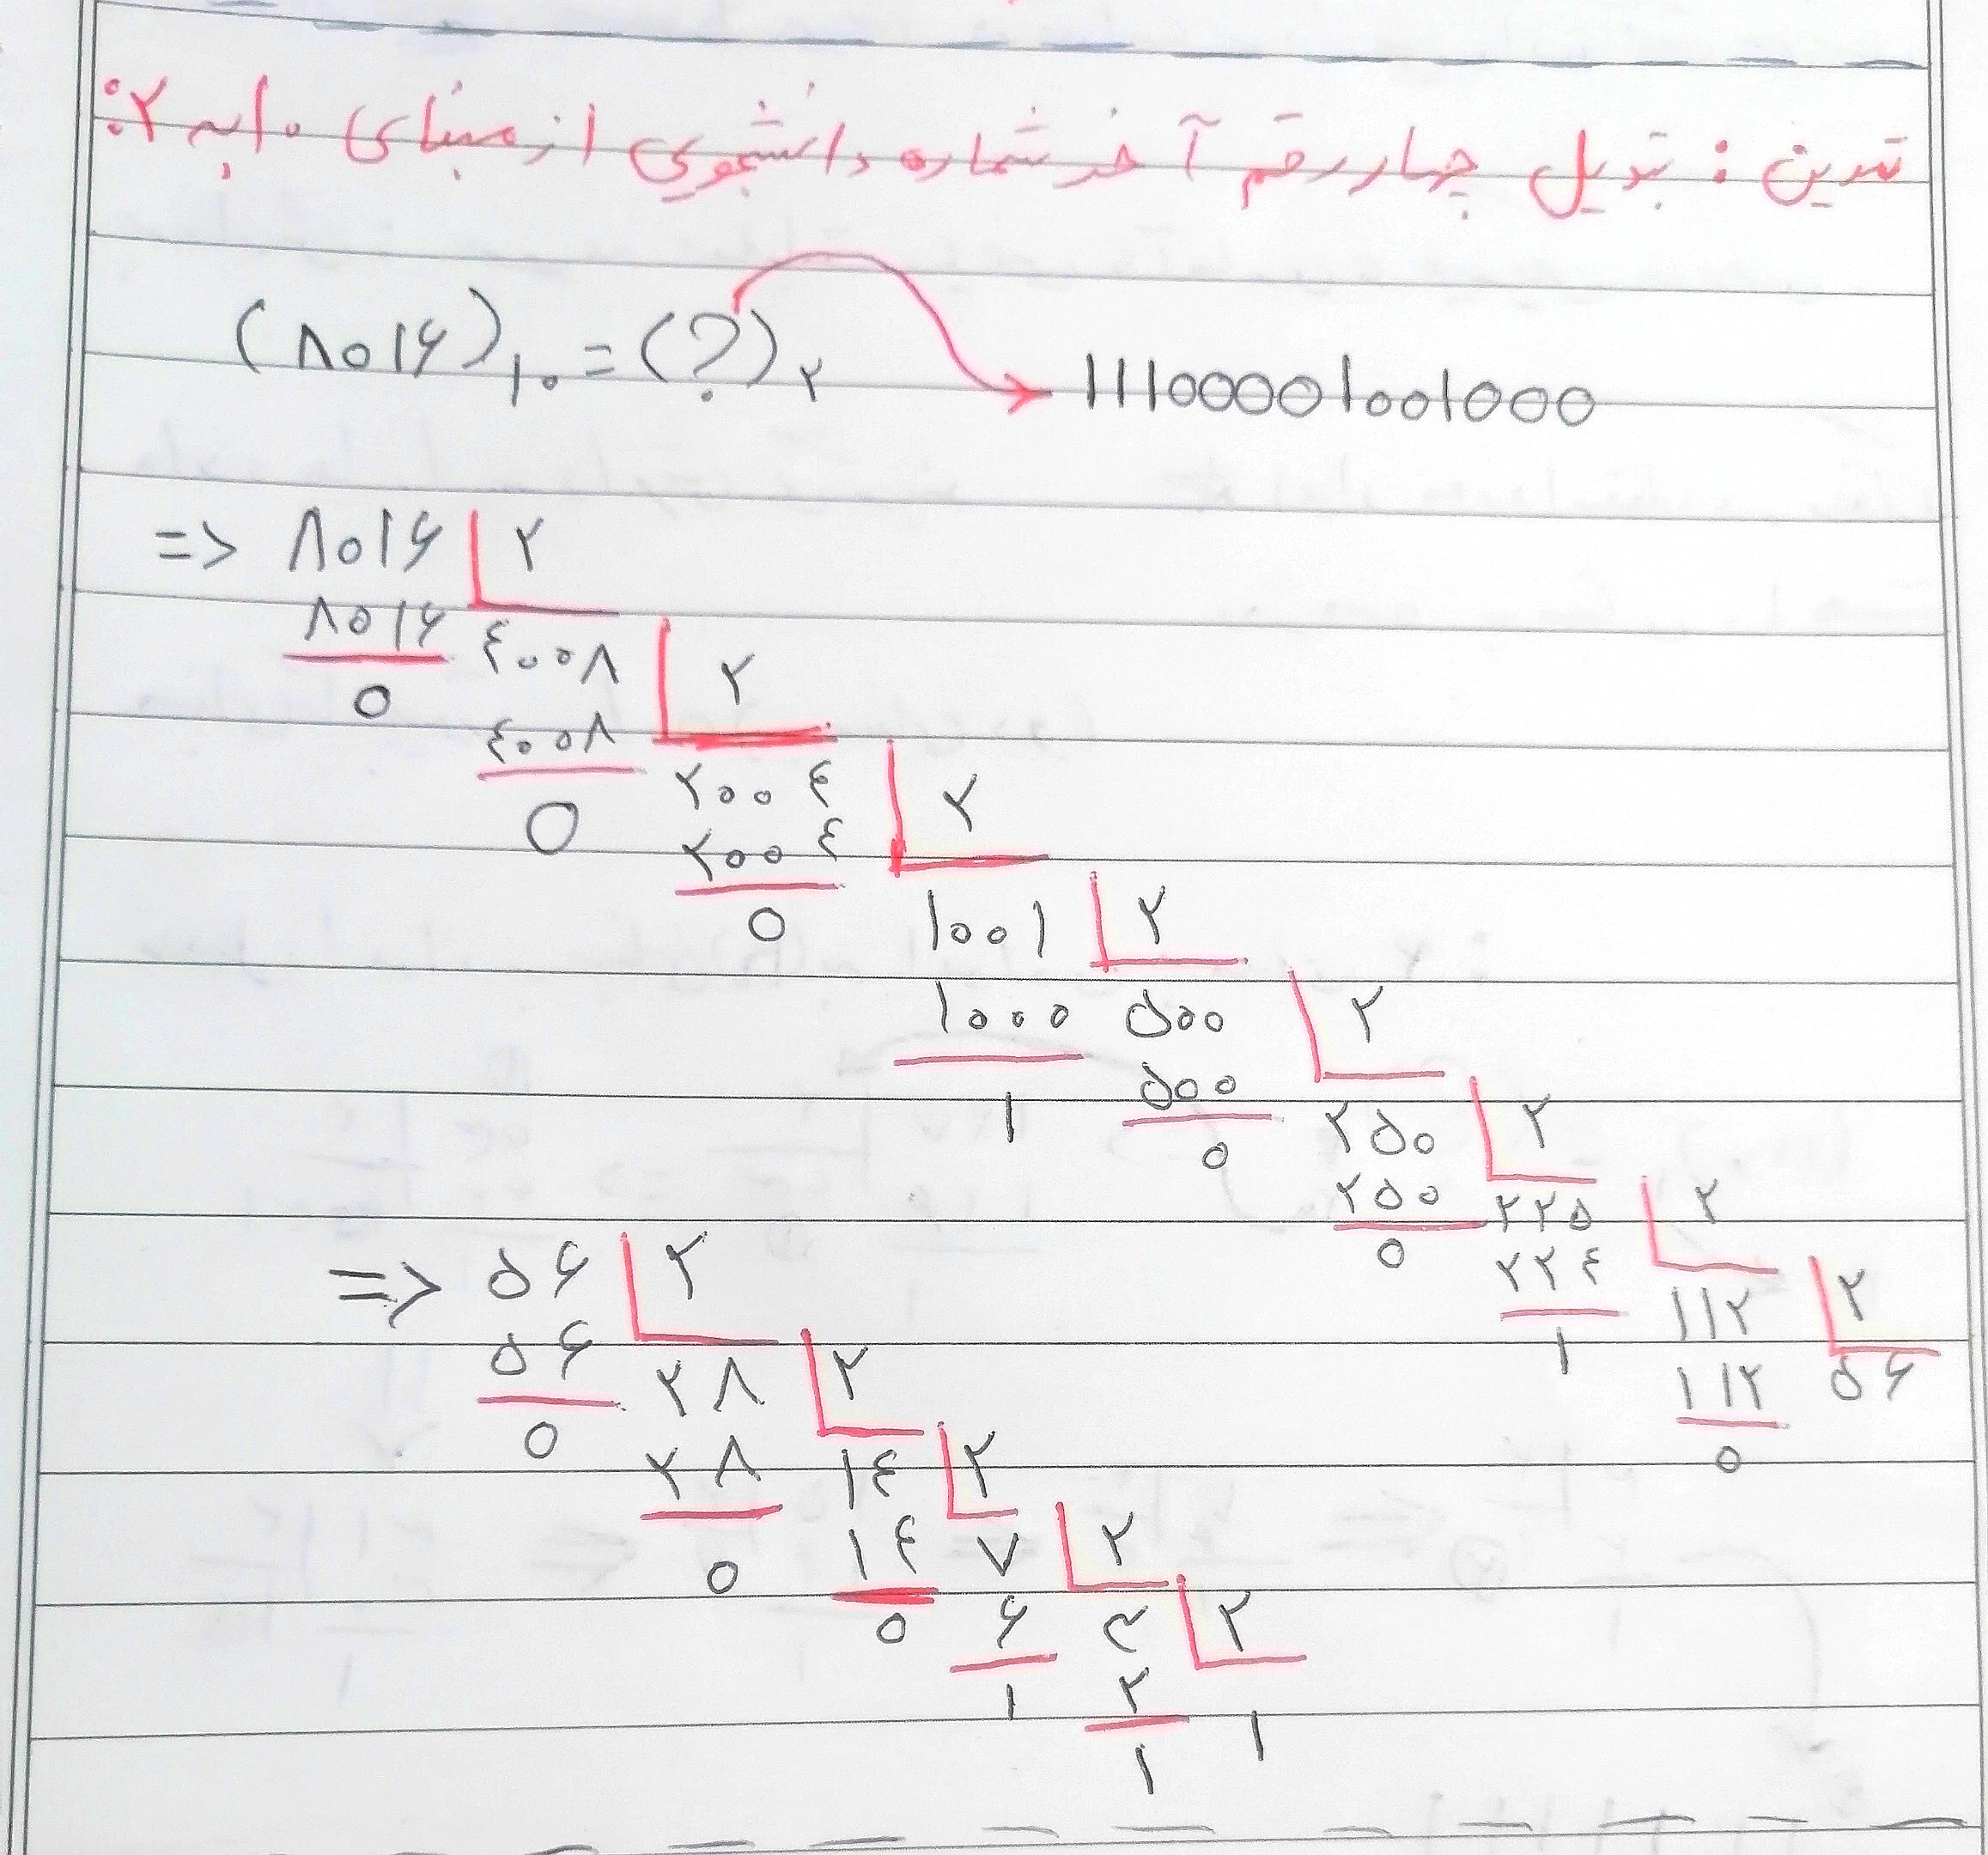 تمرین : تبدیل چهار رقم آخر شماره دانشجوی از مبنای ۱۰ به ۲:
(۸۰۱۶)۱۰ = (?)۲ → 11100001001000
=> ۸۰۱۶ ۲
۸۰۱۶ ۴۰۰۸ ۲
0 ۴۰۰۸ ۲۰۰۴ ۲
0 ۲۰۰۴ ۱۰۰۱ ۲
0 ۱۰۰۰ ۵۰۰ ۲
۱ ۵۰۰ ۲۵۰ ۲
0 ۲۵۰ ۲۲۵ ۲
0 ۲۲۴ ۱۱۲ ۲
۱ ۱۱۲ ۵۶
0
=> ۵۶ ۲
۵۶ ۲۸ ۲
0 ۲۸ ۱۴ ۲
0 ۱۴ ۷ ۲
0 ۶ ۳ ۲
۱ ۲ ۱
۱